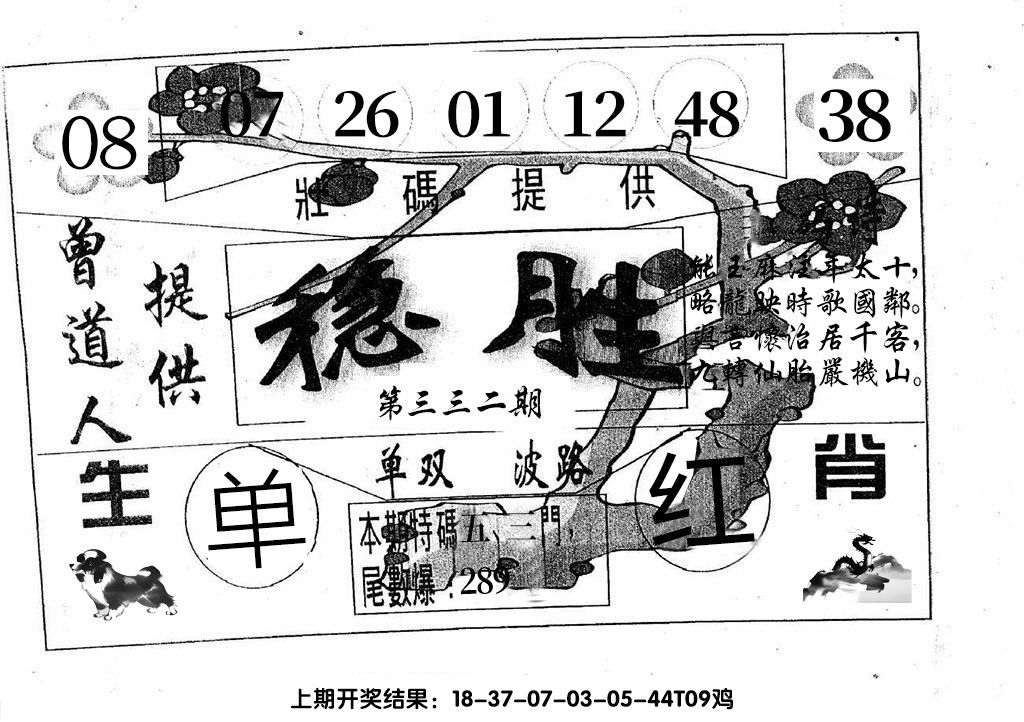 08 07 26 01 12 48 38
壯碼提供
曾道人
提供
稳胜
第三三二期
玉麻汪年太十，
略龍映時歌國鄰。
言懷治居千客，
九轉仙胎嚴機山。
单双 波路
生
肖
单
红
本期特碼五、三門，
尾數爆：289
上期开奖结果：18-37-07-03-05-44T09鸡